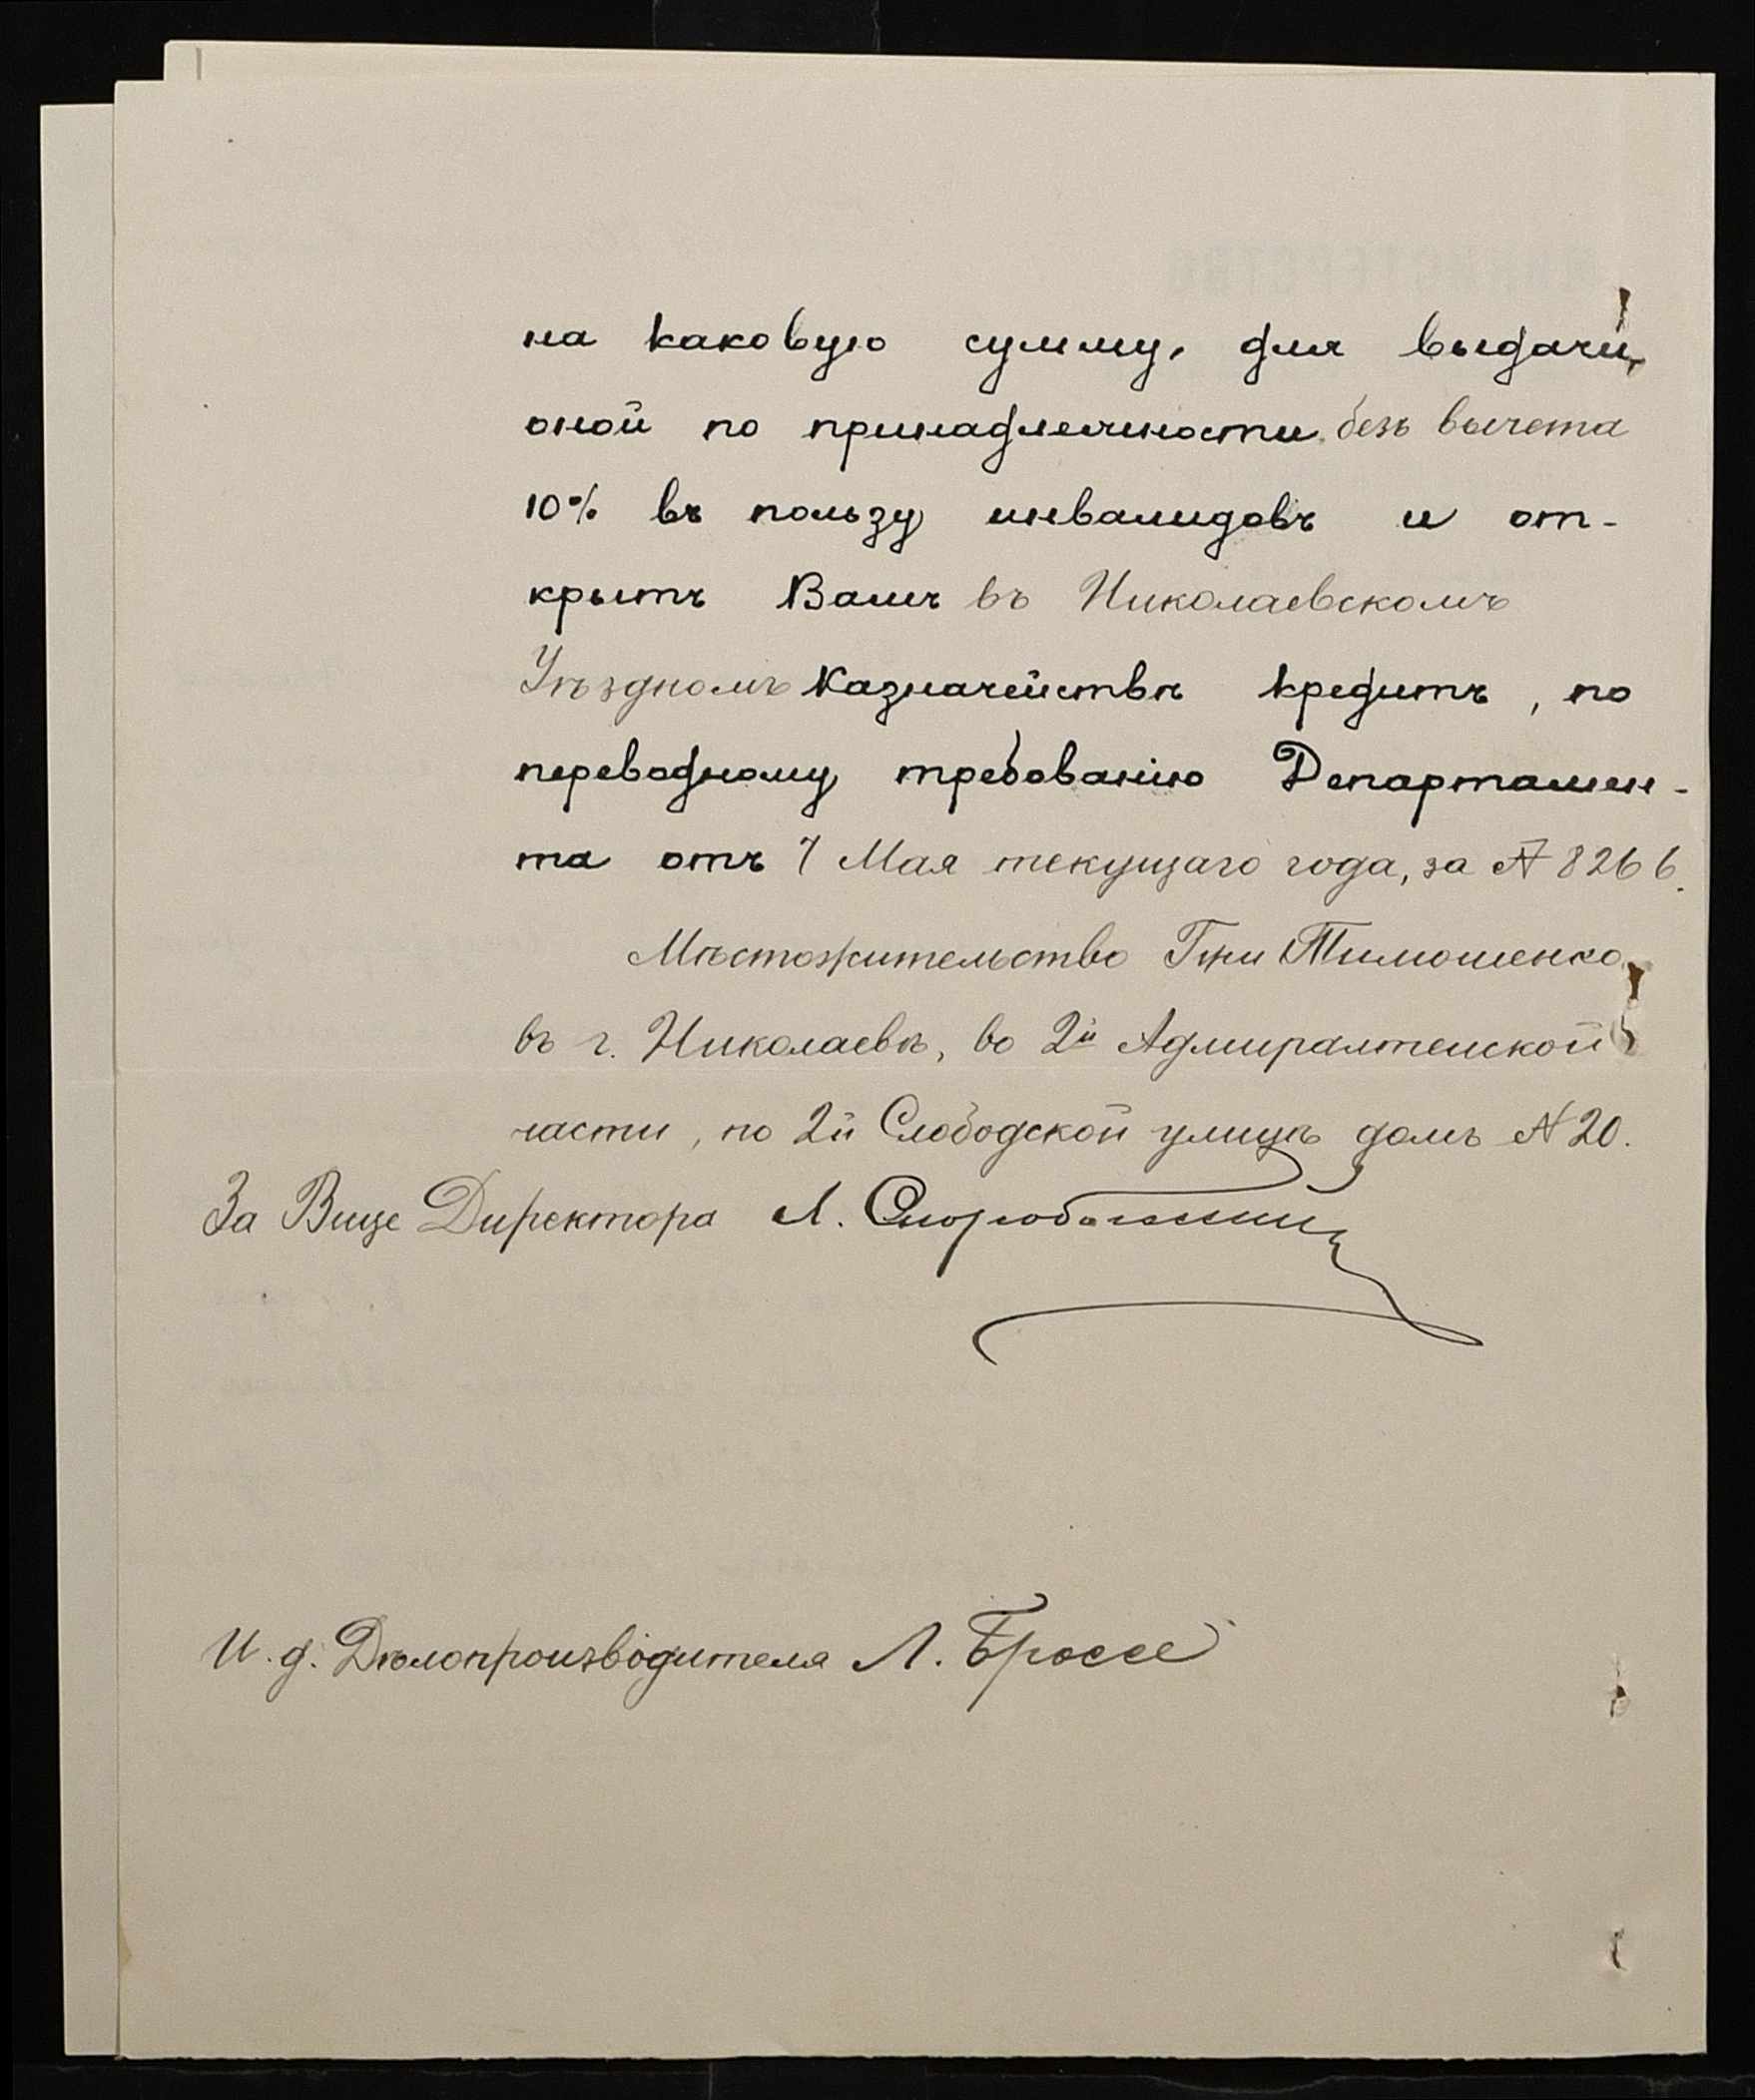 на каковую сумму, для выдачи
оной по принадлежности, безъ вычета
10% въ пользу инвалидовъ и от-
крытъ Вамъ въ Николаевскомъ
Уѣздномъ Казначействѣ кредитъ, по
переводному требованію Департамен-
та отъ 7 Мая текущаго года, за № 8266.
Мѣстожительство Гжи Тимошенко
въ г. Николаевѣ, во 2й Адмиралтейской
части, по 2й Слободской улицѣ домъ № 20.
За Вице Директора
И. д. Дѣлопроизводителя Л. Броссе